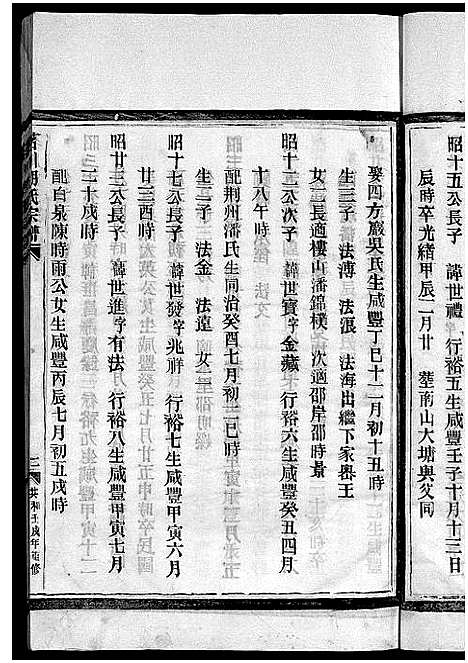 昭十五公長子 諱世禮 行裕五生咸豐壬子十月十三日
辰時卒光緒甲辰二月廿 塟南山大塘與父同
娶四方巖吳氏生咸豐丁巳十二月初十五時
生三子 法溥 法浪 法海出繼下家嶴王
女二長適樓山潘錦樸 次適邵岸邵時景
昭十二公次子 諱世寶字金藏 行裕六生咸豐癸丑四月
十八午時
配荆州潘氏生同治癸酉七月初二巳時
生二子 法金 法遠 女二
昭十七公長子 諱世發字兆祥 行裕七生咸豐甲寅六月
廿三酉時
昭廿三公長子 諱世進字有法 行裕八生咸豐甲寅七月
二十戌時
配白泉陳時雨公女生咸豐丙辰七月初五戌時
川胡氏宗譜
三
共和壬戌年重修